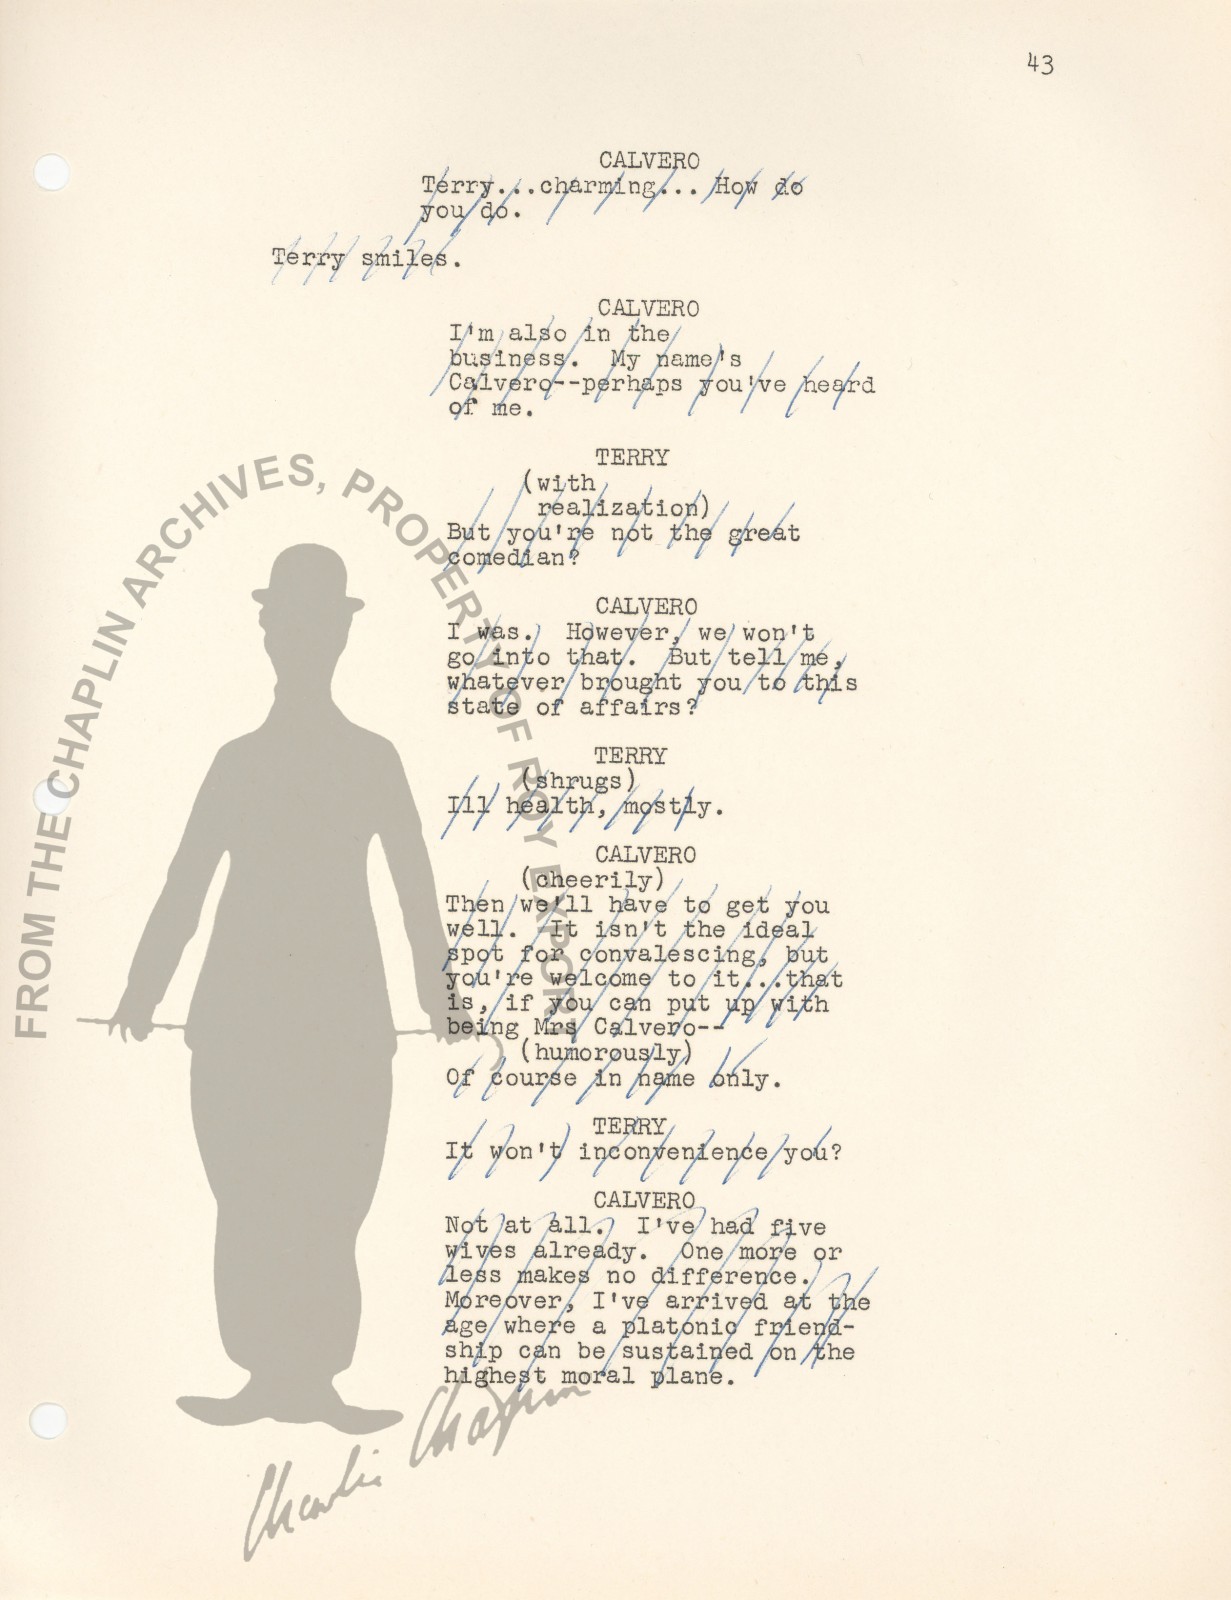 43
CALVERO
Terry...charming... How do
you do.
Terry smiles.
CALVERO
I'm also in the
business. My name's
Calvero--perhaps you've heard
of me.
TERRY
(with
realization)
But you're not the great
comedian?
CALVERO
I was. However, we won't
go into that. But tell me,
whatever brought you to this
state of affairs?
TERRY
(shrugs)
Ill health, mostly.
CALVERO
(cheerily)
Then we'll have to get you
well. It isn't the ideal
spot for convalescing, but
you're welcome to it...that
is, if you can put up with
being Mrs Calvero--
(humorously)
Of course in name only.
TERRY
It won't inconvenience you?
CALVERO
Not at all. I've had five
wives already. One more or
less makes no difference.
Moreover, I've arrived at the
age where a platonic friend-
ship can be sustained on the
highest moral plane.
FROM THE CHAPLIN ARCHIVES, PROPERTY OF ROY EXPORT
Charlie Chaplin